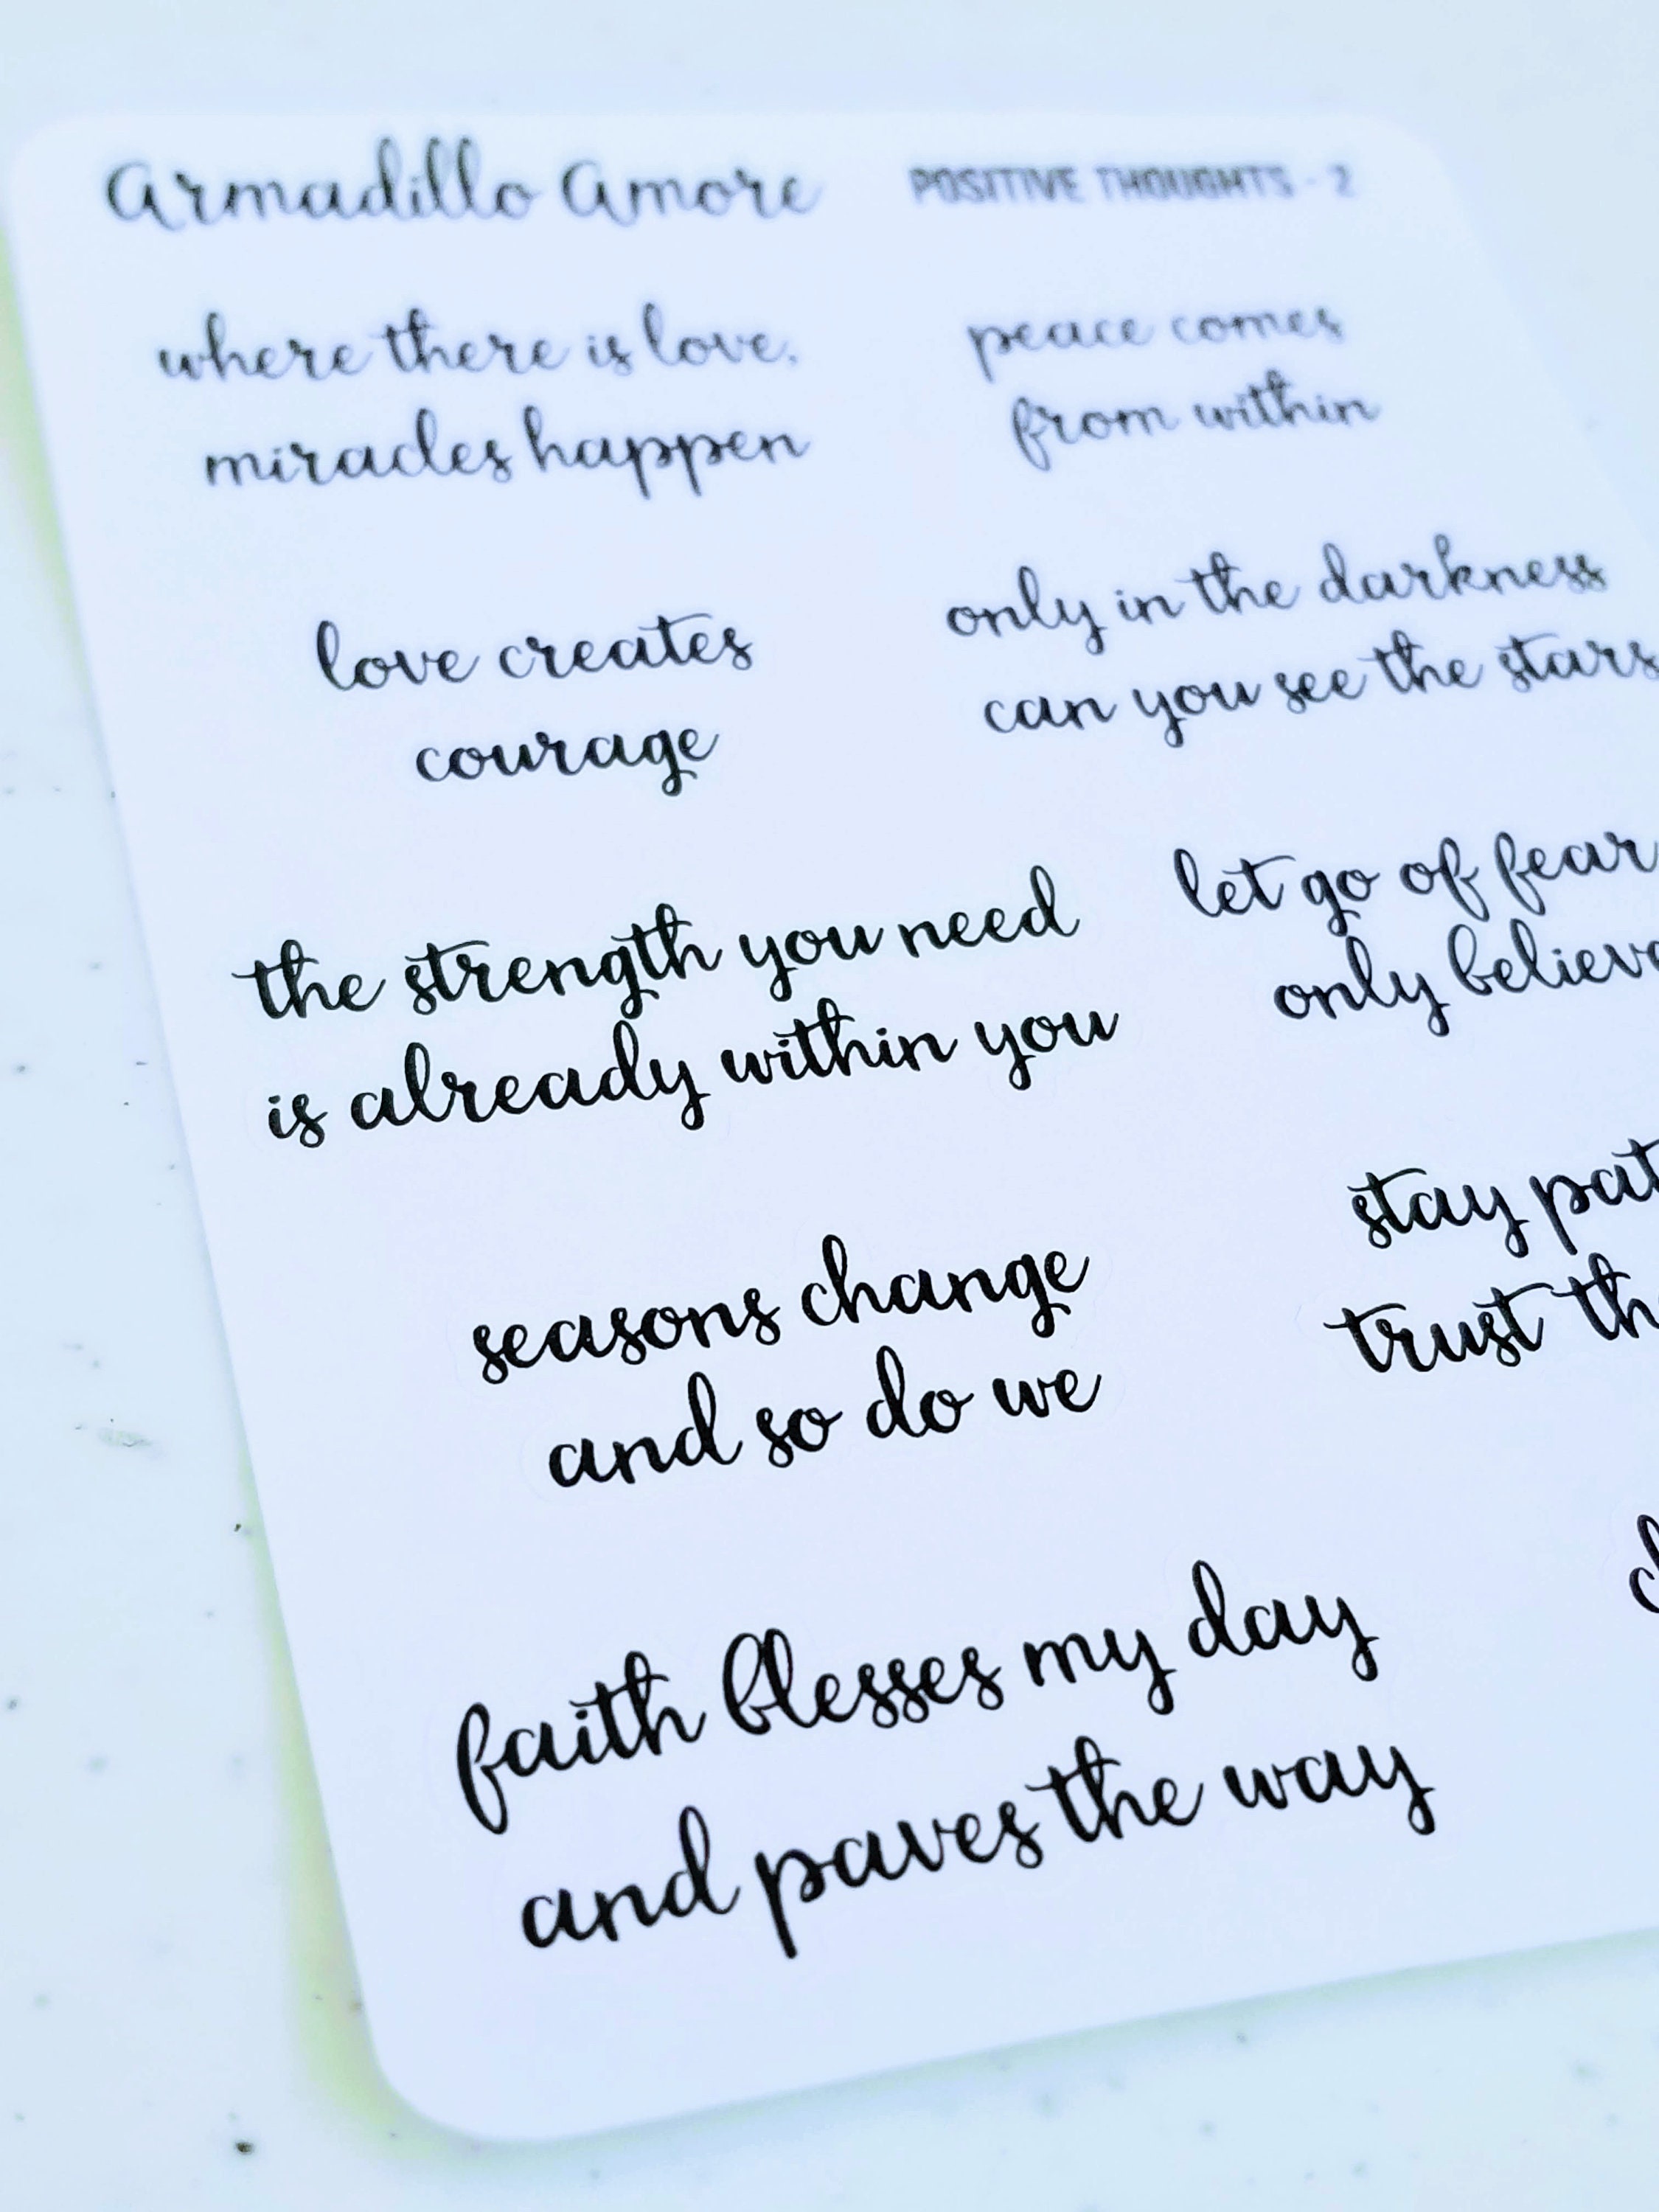 Armadillo Amore
POSITIVE THOUGHTS - 2
where there is love,
miracles happen
peace comes
from within
love creates
courage
only in the darkness
can you see the stars
the strength you need
is already within you
let go of fear
only believe
seasons change
and so do we
stay
trust
faith blesses my day
and paves the way